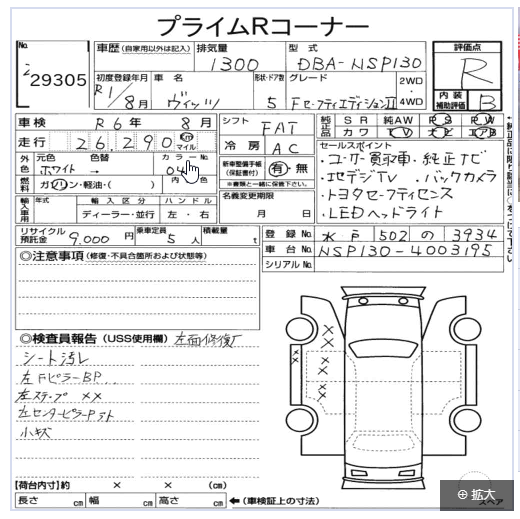 プライムRコーナー
No.
29305
車歴 (自家用以外は記入)
排気量
1300
型式
DBA-NSP130
評価点
R
初度登録年月
R1/8月
車名
ヴィッツ
形状・ドア数
5
グレード
FセーフティエディションⅡ
2WD
・
4WD
内装
補助評価
B
車検
R6年 8月
シフト
FAT
純正品
SR 純AW PS PW
カワ TV ナビ エアB
走行
26,290
km
マイル
冷房
AC
セールスポイント
・ユーザー買取車・純正ナビ
・地デジTV ・バックカメラ
・トヨタセーフティセンス
・LEDヘッドライト
外色
元色
ホワイト
色替
→
カラーNo.
04
内色
新車整備手帳
(保証書付)
有・無
※書類と一緒に保管下さい。
燃料
ガソリン・軽油・( )
名義変更期限
月 日
輸入車用
年式
輸入区分
ディーラー・並行
ハンドル
左・右
リサイクル預託金
9,000円
乗車定員
5人
積載量
t
登録No.
水戸 502 の 3934
車台No.
NSP130-4003195
シリアルNo.
◎注意事項 (修復・不具合箇所および状態等)
◎検査員報告 (USS使用欄) 左面修復歴
シート汚レ
左FピラーBP
左ステップ××
左センターピラーP
小キズ
【荷台内寸】約 × × (cm)
長さ cm 幅 cm 高さ cm ←(車検証上の寸法)
拡大
スペア